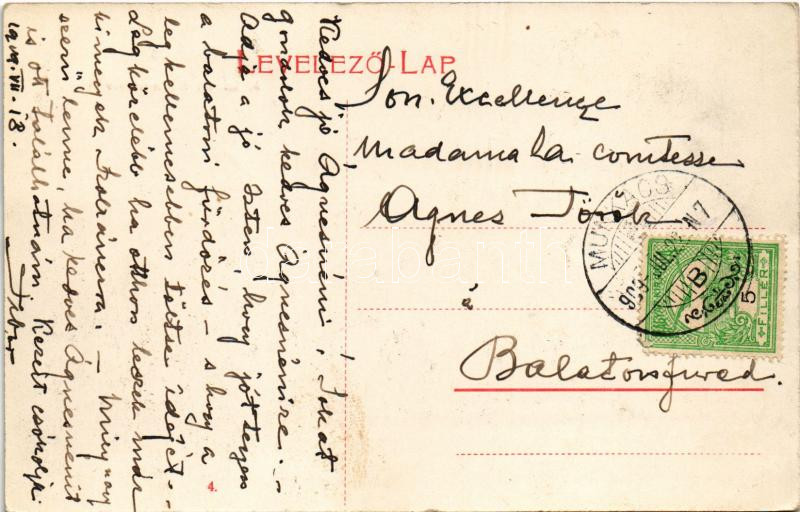 LEVELEZŐ-LAP
Son. Excellenze
Madama La. comtesse
Agnes Török
à
Balatonfüred.
MUNKÁCS
5
FILLÉR
Kedves jó Ágnesnéni, sokat
gondolok kedves Ágnesnénire. –
Adja a jó Isten, hogy jót tegyen
a balatoni fürdőzés – s hogy a
legkellemesebben töltse idejét. –
Legközelebb ha otthon leszek már
kimegyek – Mily nagy
szem lenne, ha kedves Ágnesnénit
is ott találhatnám Kezeit csókolja
VII. 18.
4.